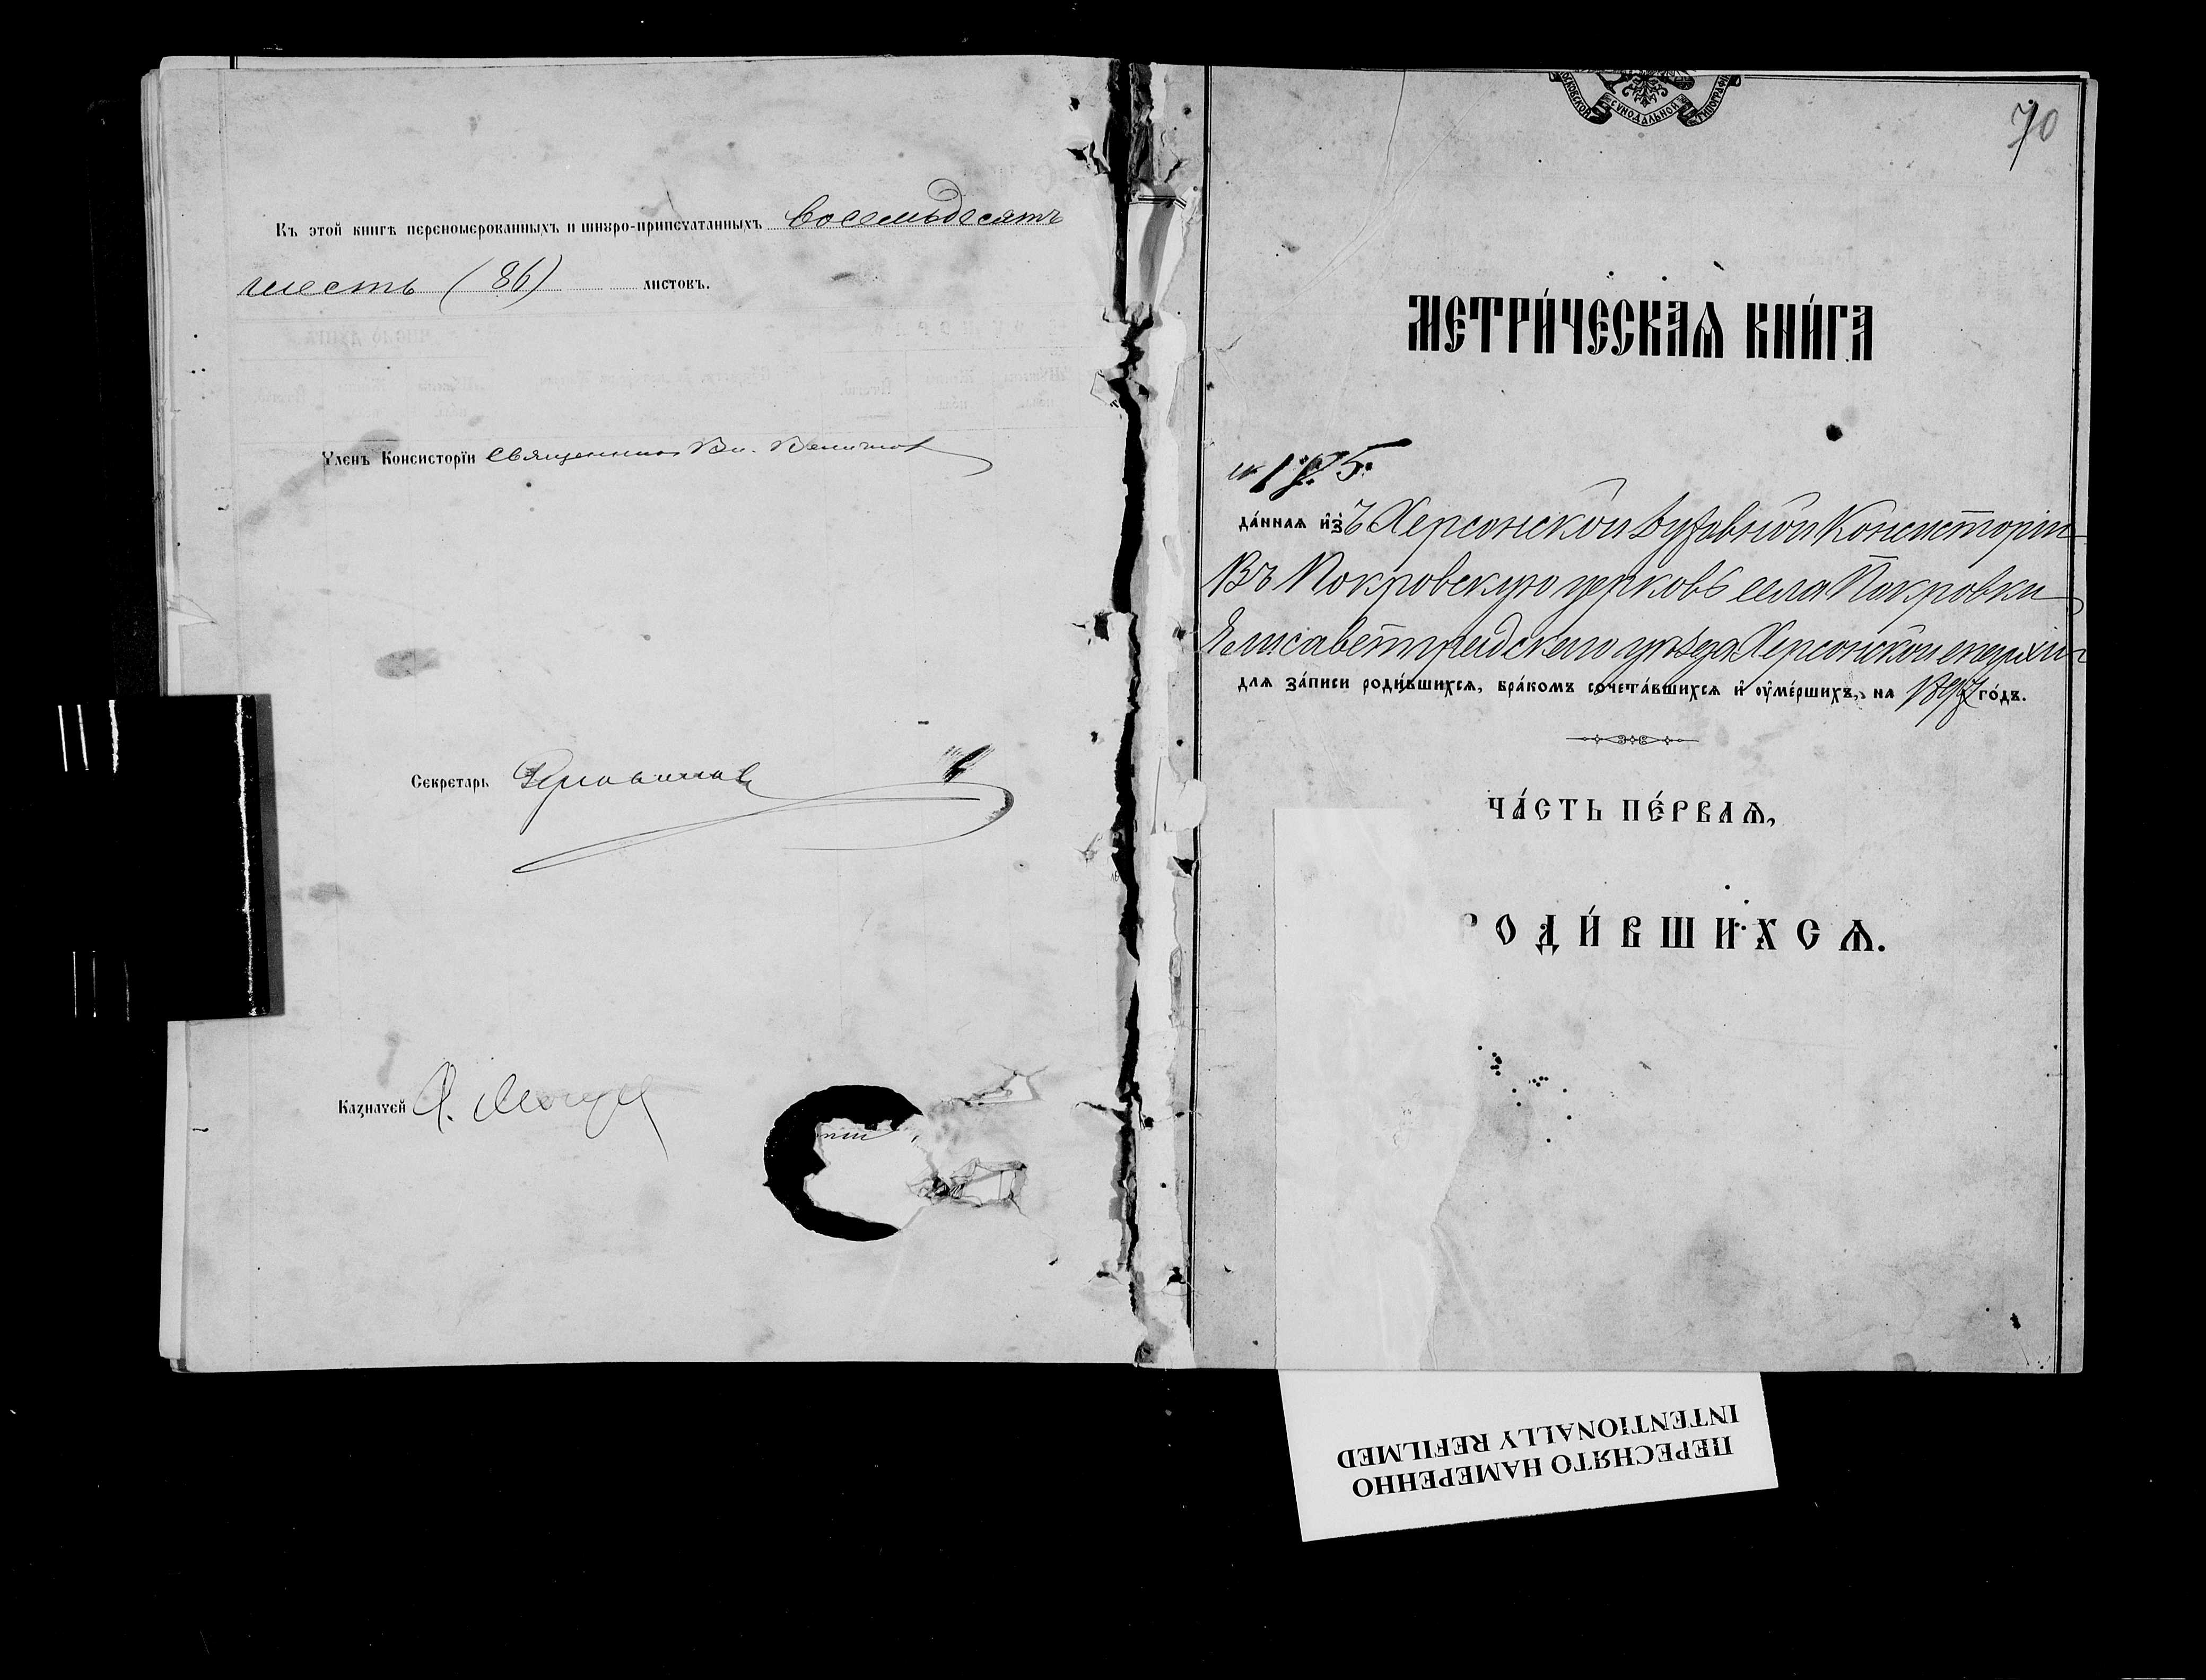 Въ этой книгѣ перенумерованныхъ и шнуро-припечатанныхъ восемьдесятъ
шесть (86) листовъ.
Членъ Консисторіи Священникъ Вл.
Секретарь
Казначей
МОСКОВСКОЙ СѴНОДАЛЬНОЙ ТИПОГРАФІИ
70
МЕТРИ́ЧЕСКАѦ КНИ́ГА
да́ннаѧ и҆зъ Херсонской Духовной Консисторіи
Въ Покровскую церковь села Покровки
Елисаветградскаго уѣзда Херсонской епархіи
для за́писи роди́вшихсѧ, бра́комъ сочета́вшихсѧ и҆ оу҆ме́ршихъ, на 1897 го́дъ.
ЧА́СТЬ ПЕ́РВАѦ,
РОДИ́ВШИХСѦ.
ПЕРЕСНЯТО НАМЕРЕННО
INTENTIONALLY REFILMED